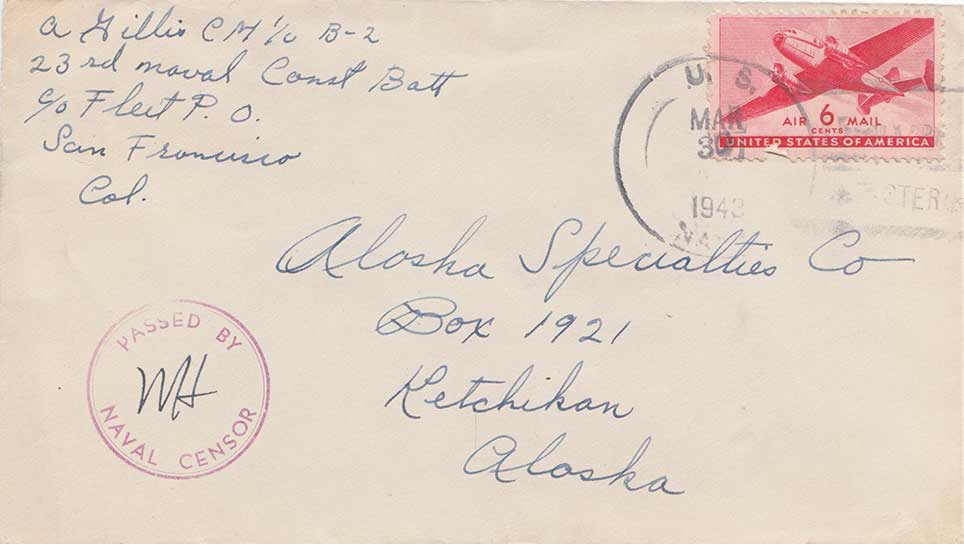 A Gillis CM 1/c B-2
23rd naval Const Batt
c/o Fleet P. O.
San Francisco
Cal.
U. S.
MAR
1943
AIR 6 MAIL
CENTS
UNITED STATES OF AMERICA
Alaska Specialties Co
Box 1921
Ketchikan
Alaska
PASSED BY
NAVAL CENSOR